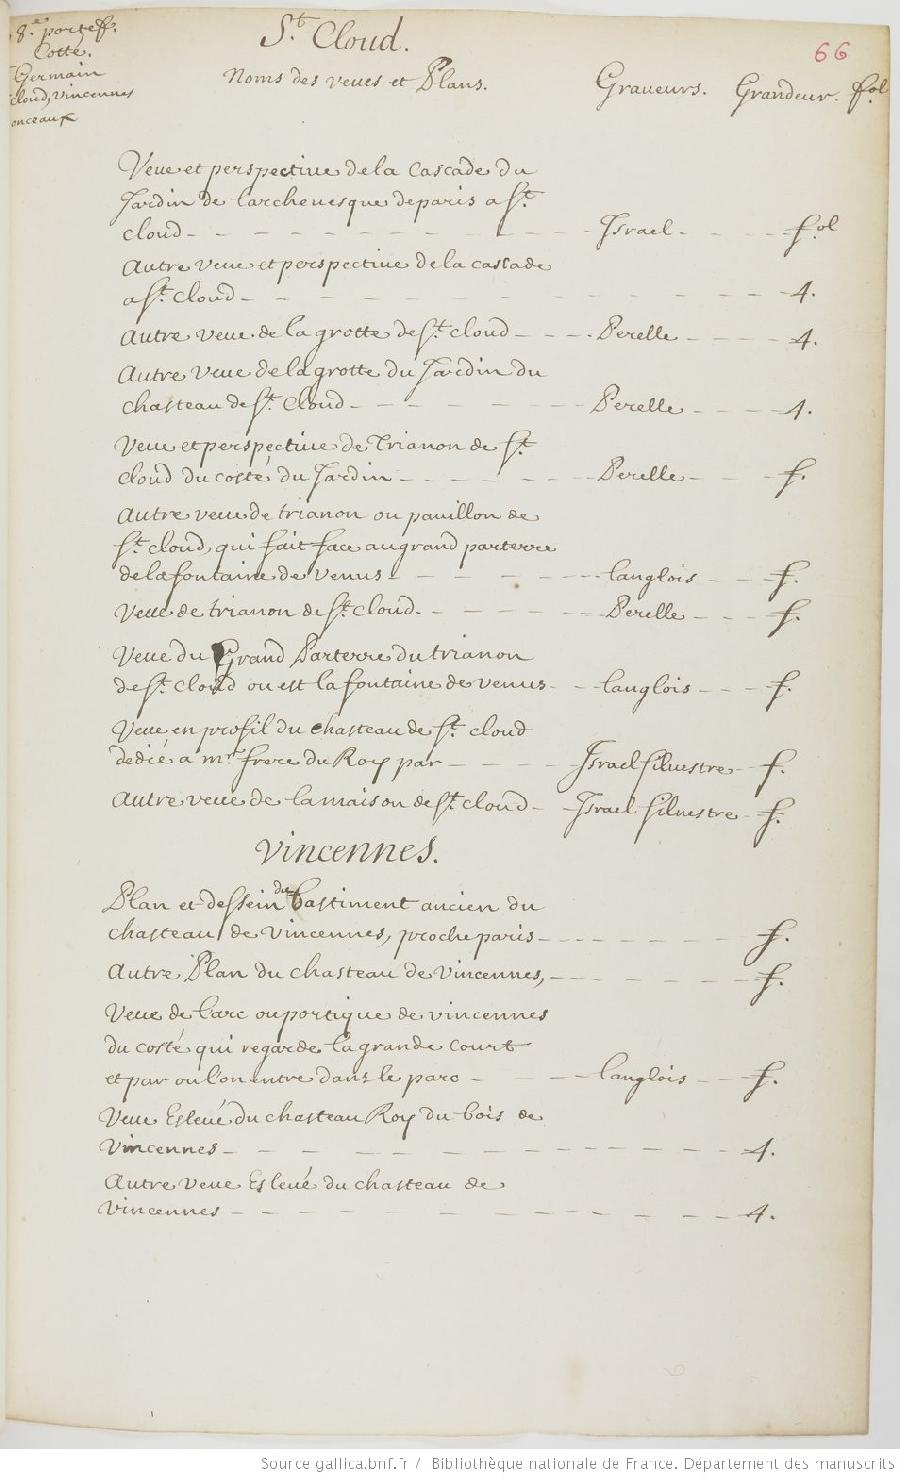 8.e portef.
Cotté.
Germain
cloud, vincennes
onceaux
St. Cloud.
66
Noms des veues et Plans. Graueurs. Grandeur. fol
Veue et perspectiue de la Cascade du
Jardin de larcheuesque de paris a St.
cloud - - - Israel - - - fol
Autre veue et perspectiue de la cascade
a St. cloud - - - 4.
Autre veue de la grotte de St. cloud - - - Perelle - - - 4.
Autre veue de la grotte du Jardin du
chasteau de St. Cloud - - - Perelle - - - 4.
Veue et perspectiue de Trianon de St.
Cloud du costé du Jardin - - - Perelle - - - f.
Autre veue de trianon ou pauillon de
St. cloud, qui fait face au grand parterre
de la fontaine de venus - - - langlois - - - f.
Veue de trianon de St. cloud - - - Perelle - - - f.
Veue du Grand Parterre du trianon
de St. cloud ou est la fontaine de venus - - langlois - - - f.
Veue en profil du chasteau de St. cloud
dedié a mr. frere du Roy par - - - Israel siluestre - f.
Autre veue de la maison de St. cloud - Israel siluestre - f.
Vincennes.
Plan et dessein du bastiment ancien du
chasteau de vincennes, proche paris - - - f.
Autre Plan du chasteau de vincennes, - - - f.
Veue de larc ou portique de vincennes
du costé qui regarde la grande Court
et par ou l'on entre dans le parc - - - langlois - - - f.
Veue Esleué du chasteau Roy. du bois de
vincennes - - - 4.
Autre veue Esleué du chasteau de
vincennes - - - 4.
Source gallica.bnf.fr / Bibliothèque nationale de France. Département des manuscrits